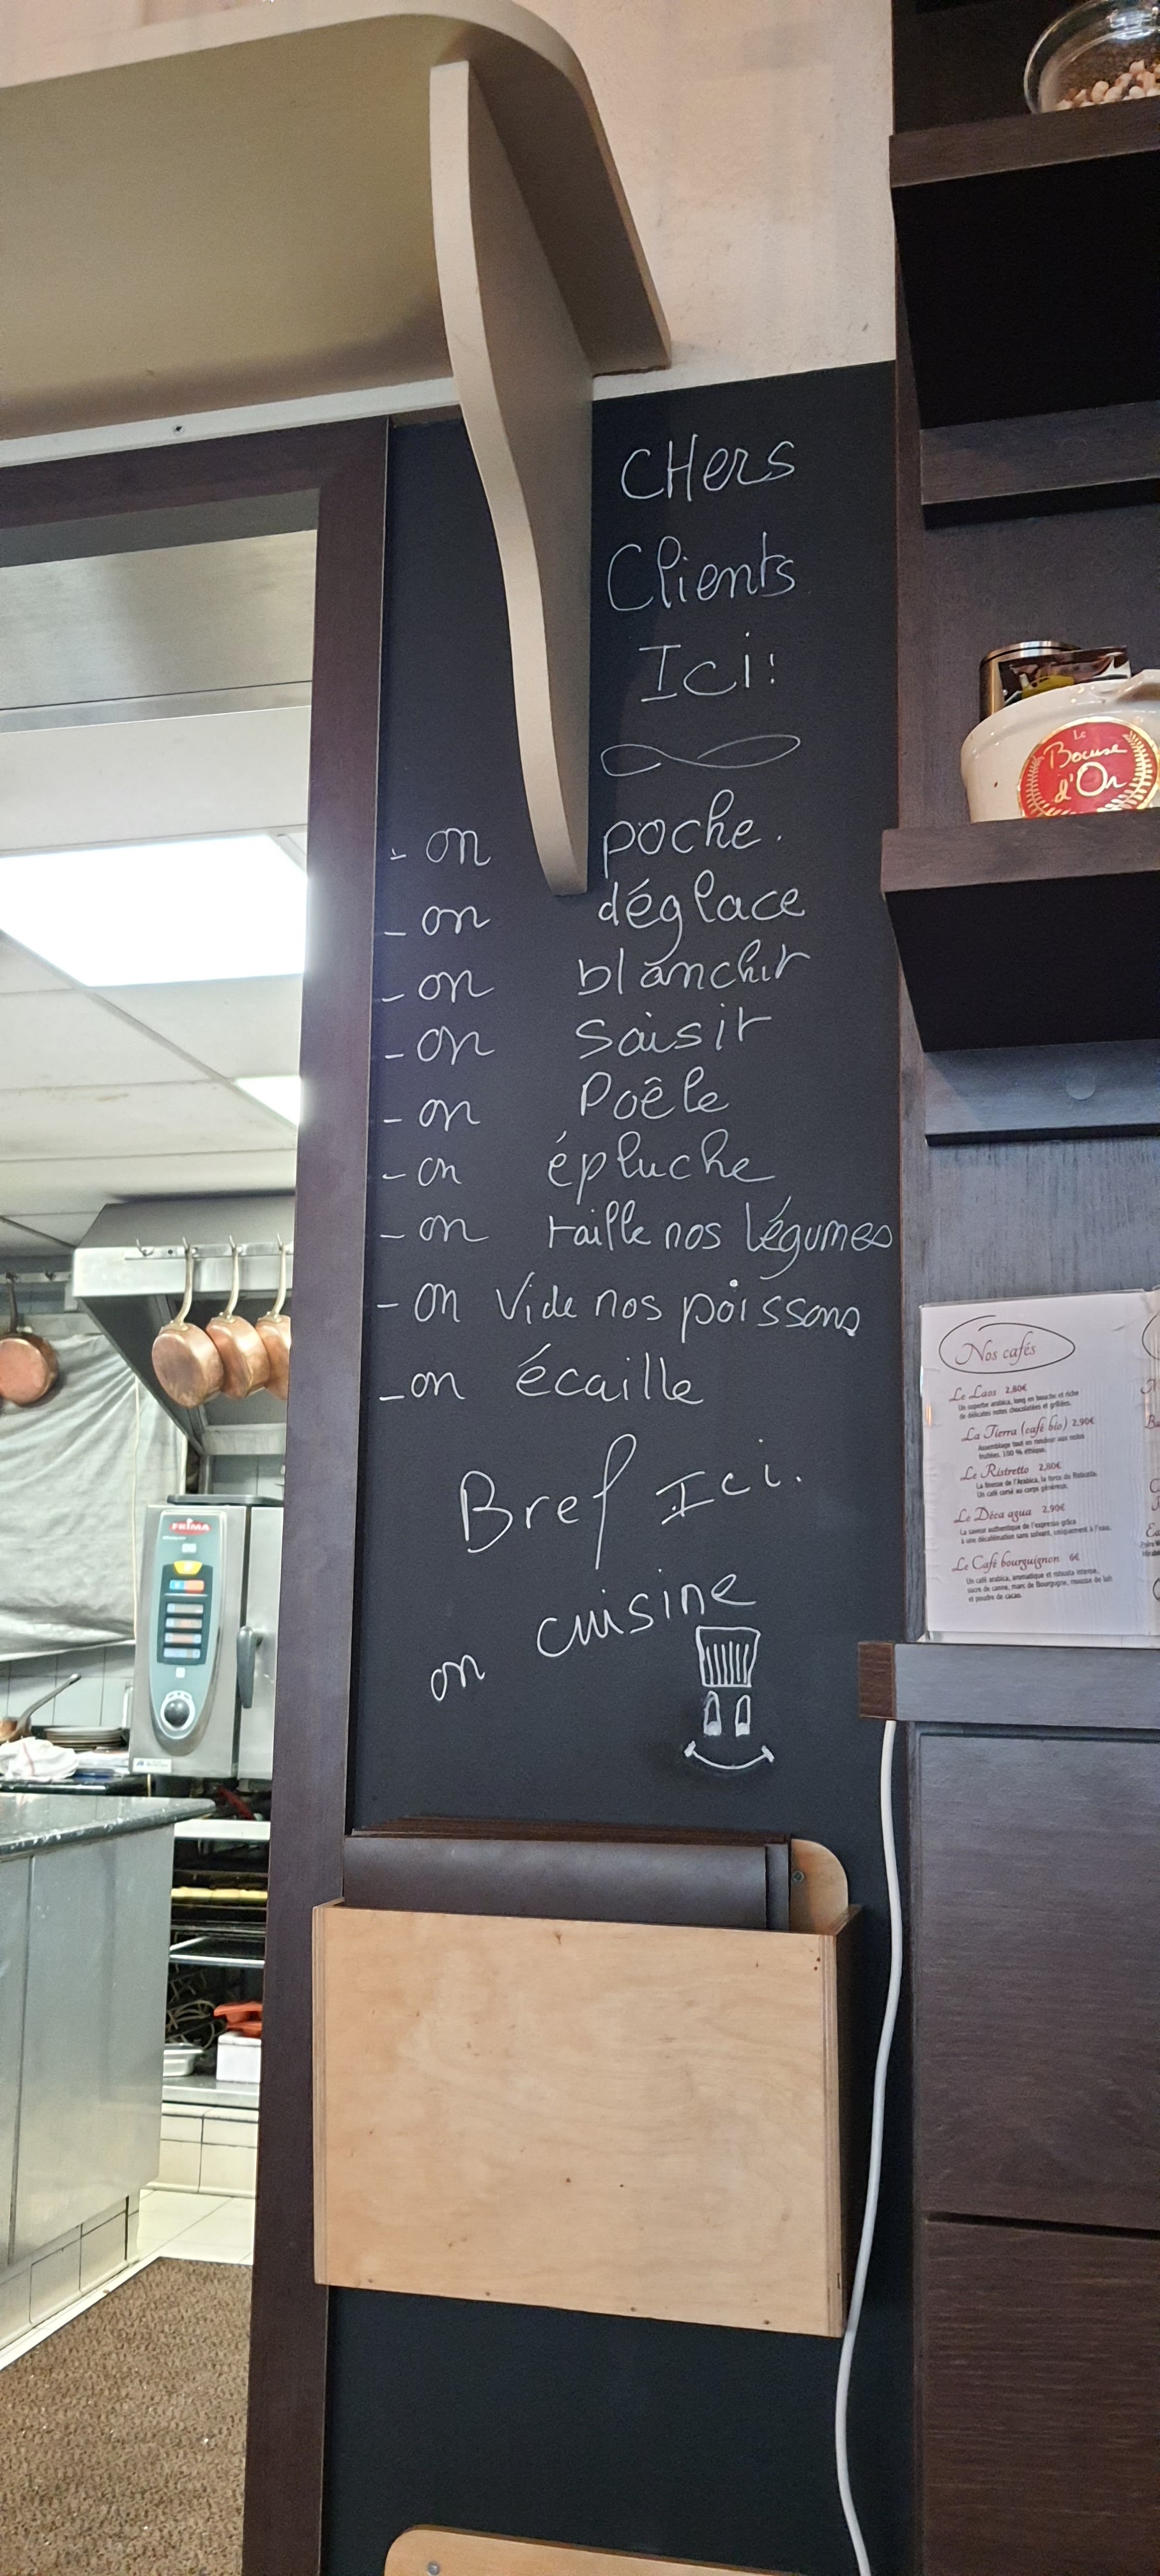 CHers
Clients
Ici:
- on poche.
- on déglace
- on blanchit
- on saisit
- on Poêle
- on épluche
- on taille nos légumes
- on vide nos poissons
- on écaille
Bref Ici.
on cuisine
Le
Bocuse
d'Or
Nos cafés
Le Laos 2,80€
Un superbe arabica, long en bouche et riche
de délicates notes chocolatées et grillées.
La Tierra (café bio) 2,90€
Assemblage tout en rondeur aux notes
fruitées. 100 % éthique.
Le Ristretto 2,80€
La finesse de l'Arabica, la force du Robusta.
Un café corsé au corps généreux.
Le Déca aqua 2,90€
La saveur authentique de l'expresso grâce
à une décaféination sans solvant, uniquement à l'eau.
Le Café bourguignon 6€
Un café arabica, aromatique et robusta intense,
sucre de canne, marc de Bourgogne, mousse de lait
et poudre de cacao.
FRIMA